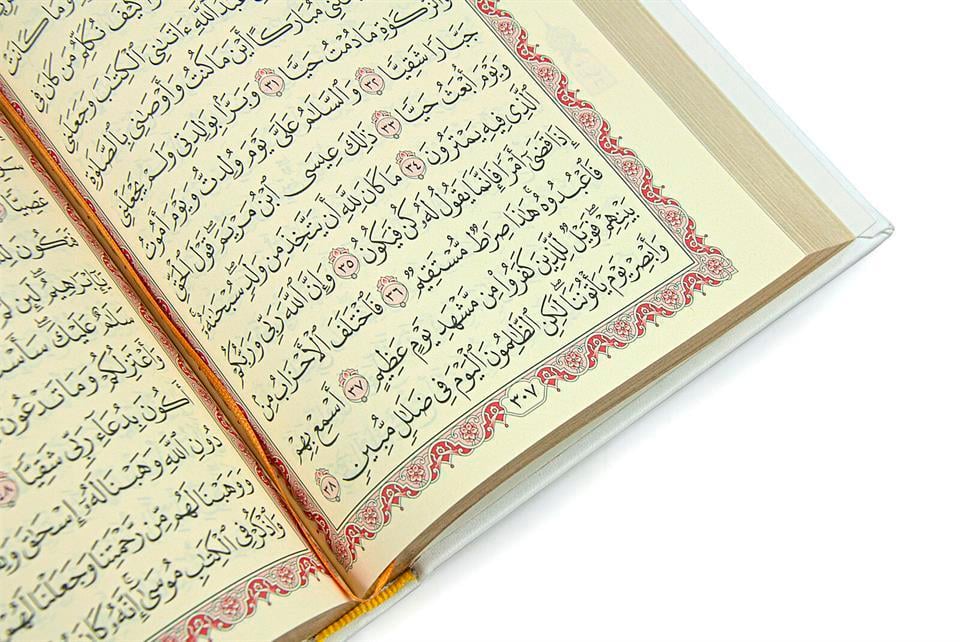 وَمَا كَانَتْ
كَيْفَ نُكَلِّمُ مَن كَانَ فِى
عَبْدُ ٱللَّهِ ءَاتَىٰنِىَ ٱلْكِتَٰبَ وَجَعَلَنِى
مُبَارَكًا أَيْنَ مَا كُنتُ وَأَوْصَٰنِى بِٱلصَّلَوٰةِ
وَٱلزَّكَوٰةِ مَا دُمْتُ حَيًّا ٣١ وَبَرًّۢا بِوَٰلِدَتِى وَلَمْ يَجْعَلْنِى
جَبَّارًا شَقِيًّا ٣٢ وَٱلسَّلَٰمُ عَلَىَّ يَوْمَ وُلِدتُّ وَيَوْمَ أَمُوتُ
وَيَوْمَ أُبْعَثُ حَيًّا ٣٣ ذَٰلِكَ عِيسَى ٱبْنُ مَرْيَمَ قَوْلَ ٱلْحَقِّ
ٱلَّذِى فِيهِ يَمْتَرُونَ ٣٤ مَا كَانَ لِلَّهِ أَن يَتَّخِذَ مِن وَلَدٍ سُبْحَٰنَهُۥٓ
إِذَا قَضَىٰٓ أَمْرًا فَإِنَّمَا يَقُولُ لَهُۥ كُن فَيَكُونُ ٣٥ وَإِنَّ ٱللَّهَ رَبِّى وَرَبُّكُمْ
فَٱعْبُدُوهُ هَٰذَا صِرَٰطٌ مُّسْتَقِيمٌ ٣٦ فَٱخْتَلَفَ ٱلْأَحْزَابُ مِنۢ
بَيْنِهِمْ فَوَيْلٌ لِّلَّذِينَ كَفَرُوا۟ مِن مَّشْهَدِ يَوْمٍ عَظِيمٍ ٣٧ أَسْمِعْ بِهِمْ
وَأَبْصِرْ يَوْمَ يَأْتُونَنَا لَٰكِنِ ٱلظَّٰلِمُونَ ٱلْيَوْمَ فِى ضَلَٰلٍ مُّبِينٍ ٣٨
٣٠٧
عَصِيًّا
فَتَكُونَ
يَٰٓإِبْرَٰهِيمُ لَئِن
سَلَٰمٌ عَلَيْكَ
وَأَعْتَزِلُكُمْ وَمَا تَدْعُونَ
أَكُونَ بِدُعَآءِ رَبِّى شَقِيًّا ٤٨
دُونِ ٱللَّهِ وَهَبْنَا لَهُۥٓ إِسْحَٰقَ
وَوَهَبْنَا لَهُم مِّن رَّحْمَتِنَا وَجَعَلْنَا لَهُمْ
وَٱذْكُرْ فِى ٱلْكِتَٰبِ مُوسَىٰٓ إِنَّهُۥ كَانَ